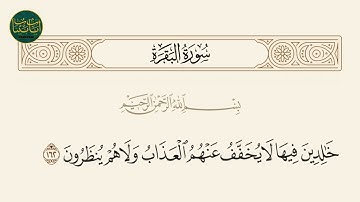 سُورَةُ البَقَرَةِ
بِسْمِ اللَّهِ الرَّحْمَٰنِ الرَّحِيمِ
خَٰلِدِينَ فِيهَا لَا يُخَفَّفُ عَنْهُمُ ٱلْعَذَابُ وَلَا هُمْ يُنظَرُونَ ١٦٢